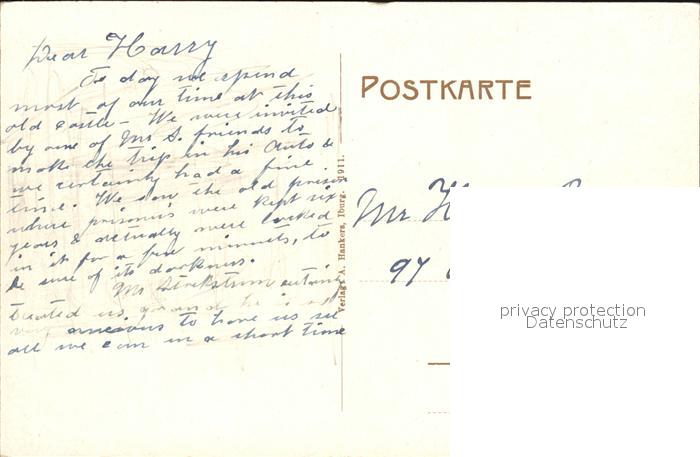 Dear Harry
To day we spend
most of our time at this
old castle - We were invited
by one of Mr S. friends to
make the trip in his Auto &
we certainly had a fine
time. We saw the old prison
where prisoners were kept six
years & actually were locked
in it for a few minuets, to
be sure of its darkness.
Mr
treated us grand he is
very anxious to have us see
all we can in a short time
POSTKARTE
Verlag: A. Hankers, Iburg. 1911.
Mr H
97
privacy protection
Datenschutz